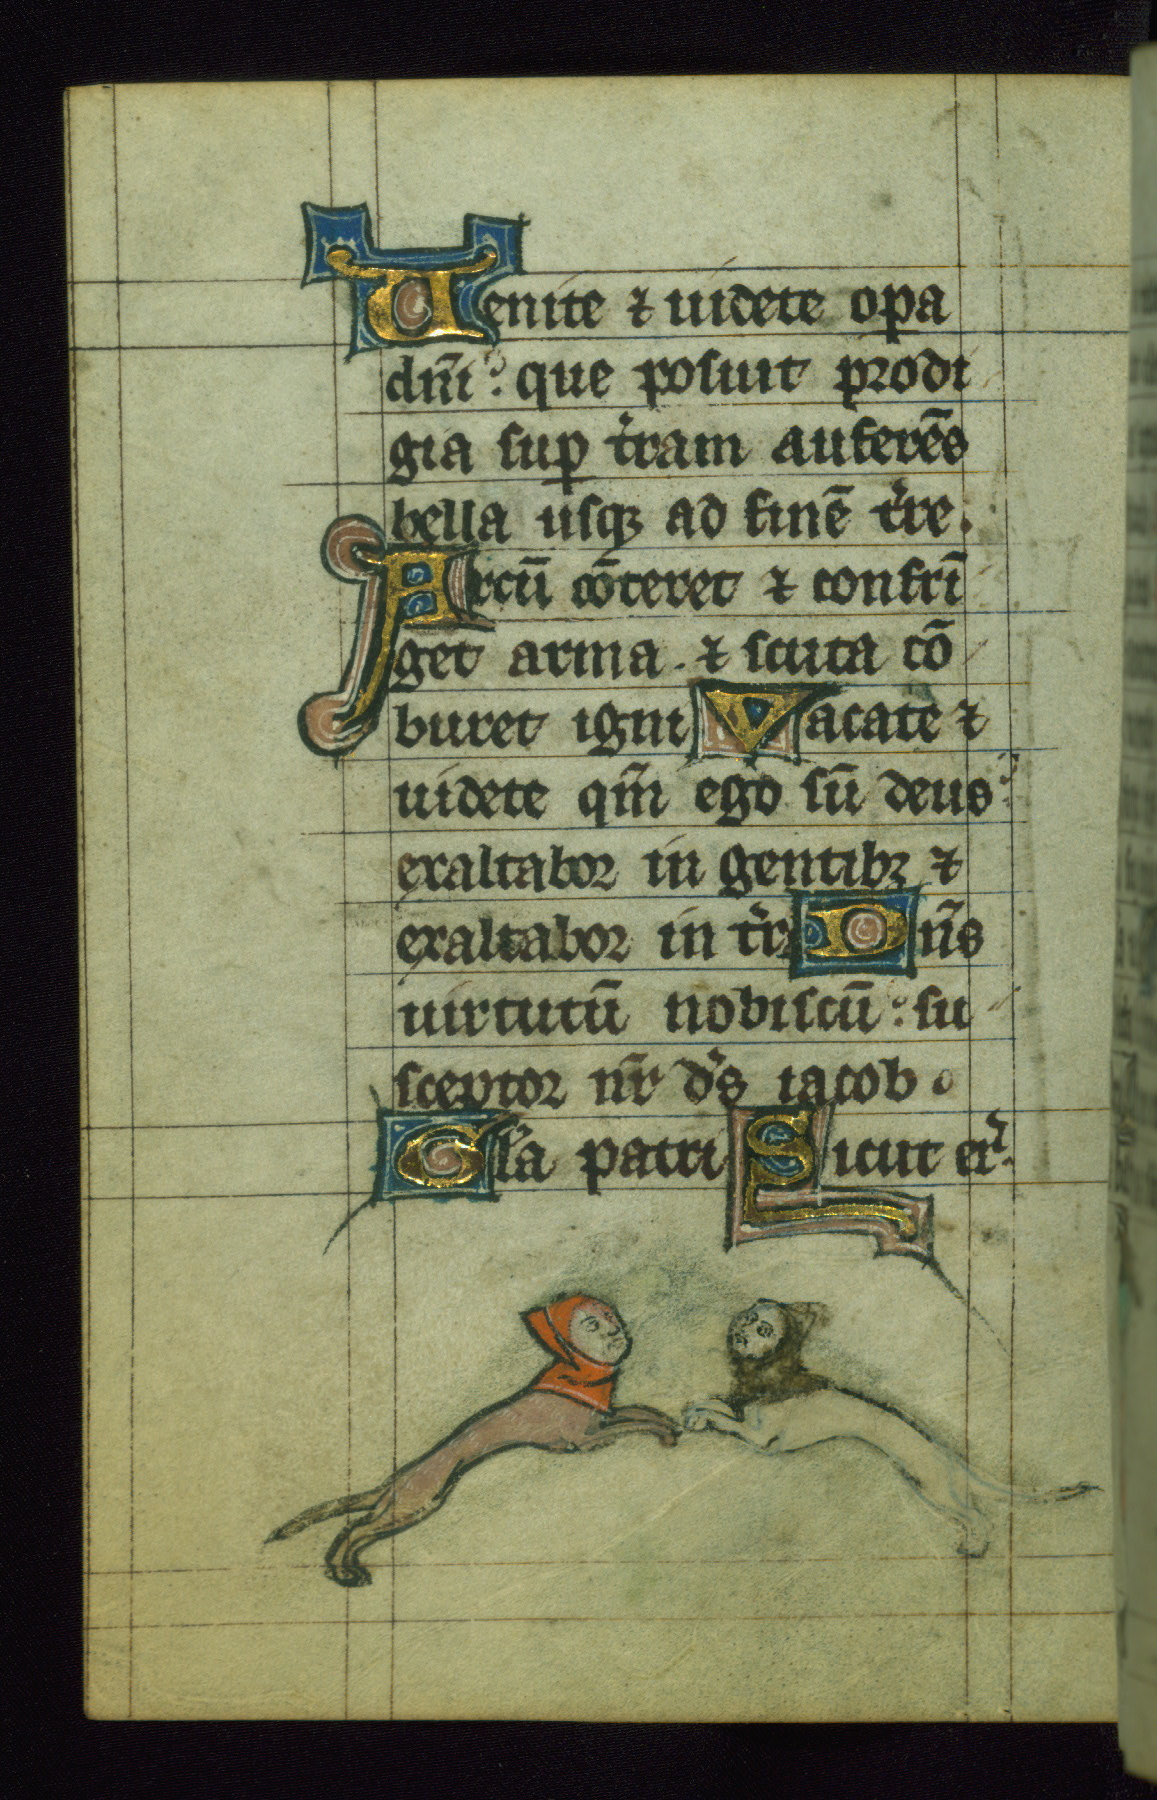 Uenite ⁊ uidete opa
dn̄i : que posuit prodi
gia sup t̓ram auferēs
bella usqꝫ ad finē t̓re .
Arcū ꝯ̄teret ⁊ confrī
get arma . ⁊ scuta cō
buret igni Vacate ⁊
uidete qm̄ ego sū deus :
exaltabor in gentibꝫ ⁊
exaltabor in t̓r Dn̄s
uirtutū nobiscū : su
sceptor nr̄ d̓s iacob .
Gl̓a patri Sicut er̓ .